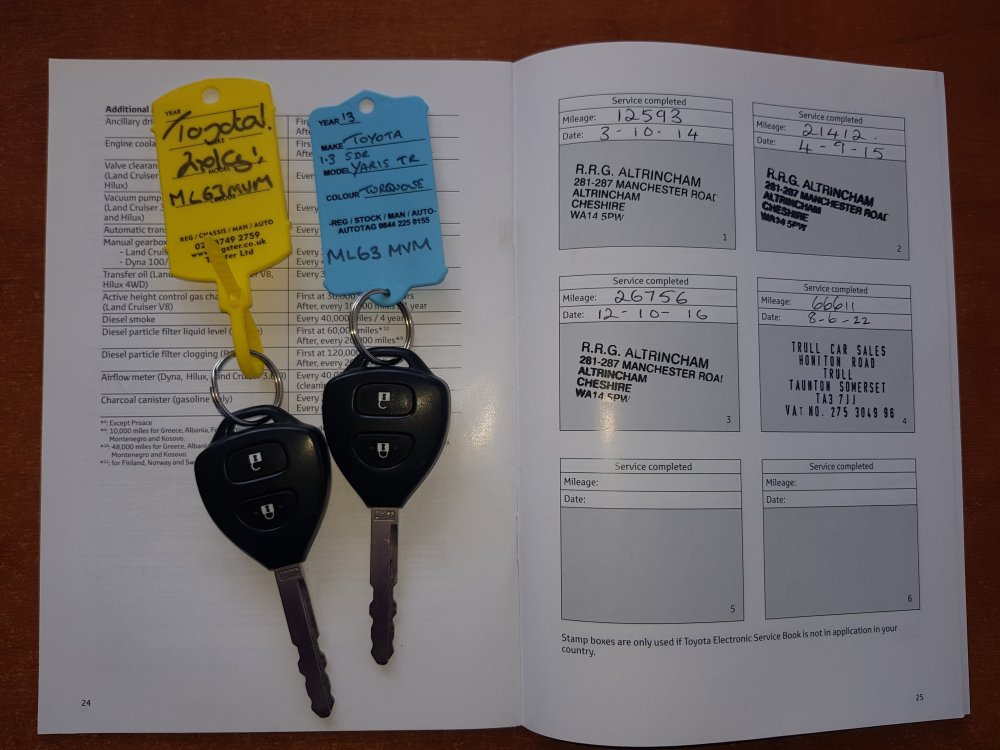 YEAR
Toyota!
MAKE
2nd Key!
MODEL
ML63MVM
COLOUR
REG / CHASSIS / MAN / AUTO
3749 2759
Ltd
YEAR 13
MAKE TOYOTA
1·3 5DR
MODEL YARIS TR
COLOUR TURQUOISE
-REG / STOCK / MAN / AUTO-
AUTOTAG 0844 225 0155
ML63 MVM
Additional
Ancillary
Engine
Valve
(Land Cruiser
Hilux)
Vacuum pump
(Land Cruiser
and Hilux)
Automatic
Manual gearbox
- Land
- Dyna 100/
Transfer oil (Land V8,
Hilux 4WD)
Active height control gas
(Land Cruiser V8)
First at 30,000
After, every 10,000 year
Diesel smoke
Every 40,000 / 4
Diesel particle filter liquid level
First at 60,000 miles*¹⁰
After, every miles*⁹
Diesel particle filter clogging
First at 120,000
After, every
Airflow meter (Dyna, Hilux,
Every
Charcoal canister (gasoline only)
Every
Every
*⁸: Except Proace
*⁹: 10,000 miles for Greece, Albania,
Montenegro and Kosovo.
*¹⁰: 48,000 miles for Greece,
Montenegro and Kosovo.
*¹¹: for Finland, Norway and
24
Service completed
Mileage: 12593
Date: 3-10-14
R.R.G. ALTRINCHAM
281-287 MANCHESTER ROAD
ALTRINCHAM
CHESHIRE
WA14 5PW
1
Service completed
Mileage: 21412.
Date: 4-9-15
R.R.G. ALTRINCHAM
281-287 MANCHESTER ROAD
ALTRINCHAM
CHESHIRE
WA14 5PW
2
Service completed
Mileage: 26756
Date: 12-10-16
R.R.G. ALTRINCHAM
281-287 MANCHESTER ROAD
ALTRINCHAM
CHESHIRE
WA14 5PW
3
Service completed
Mileage: 66611
Date: 8-6-22
TRULL CAR SALES
HONITON ROAD
TRULL
TAUNTON SOMERSET
TA3 7JJ
VAT NO. 275 3049 96
4
Service completed
Mileage:
Date:
5
Service completed
Mileage:
Date:
6
Stamp boxes are only used if Toyota Electronic Service Book is not in application in your
country.
25